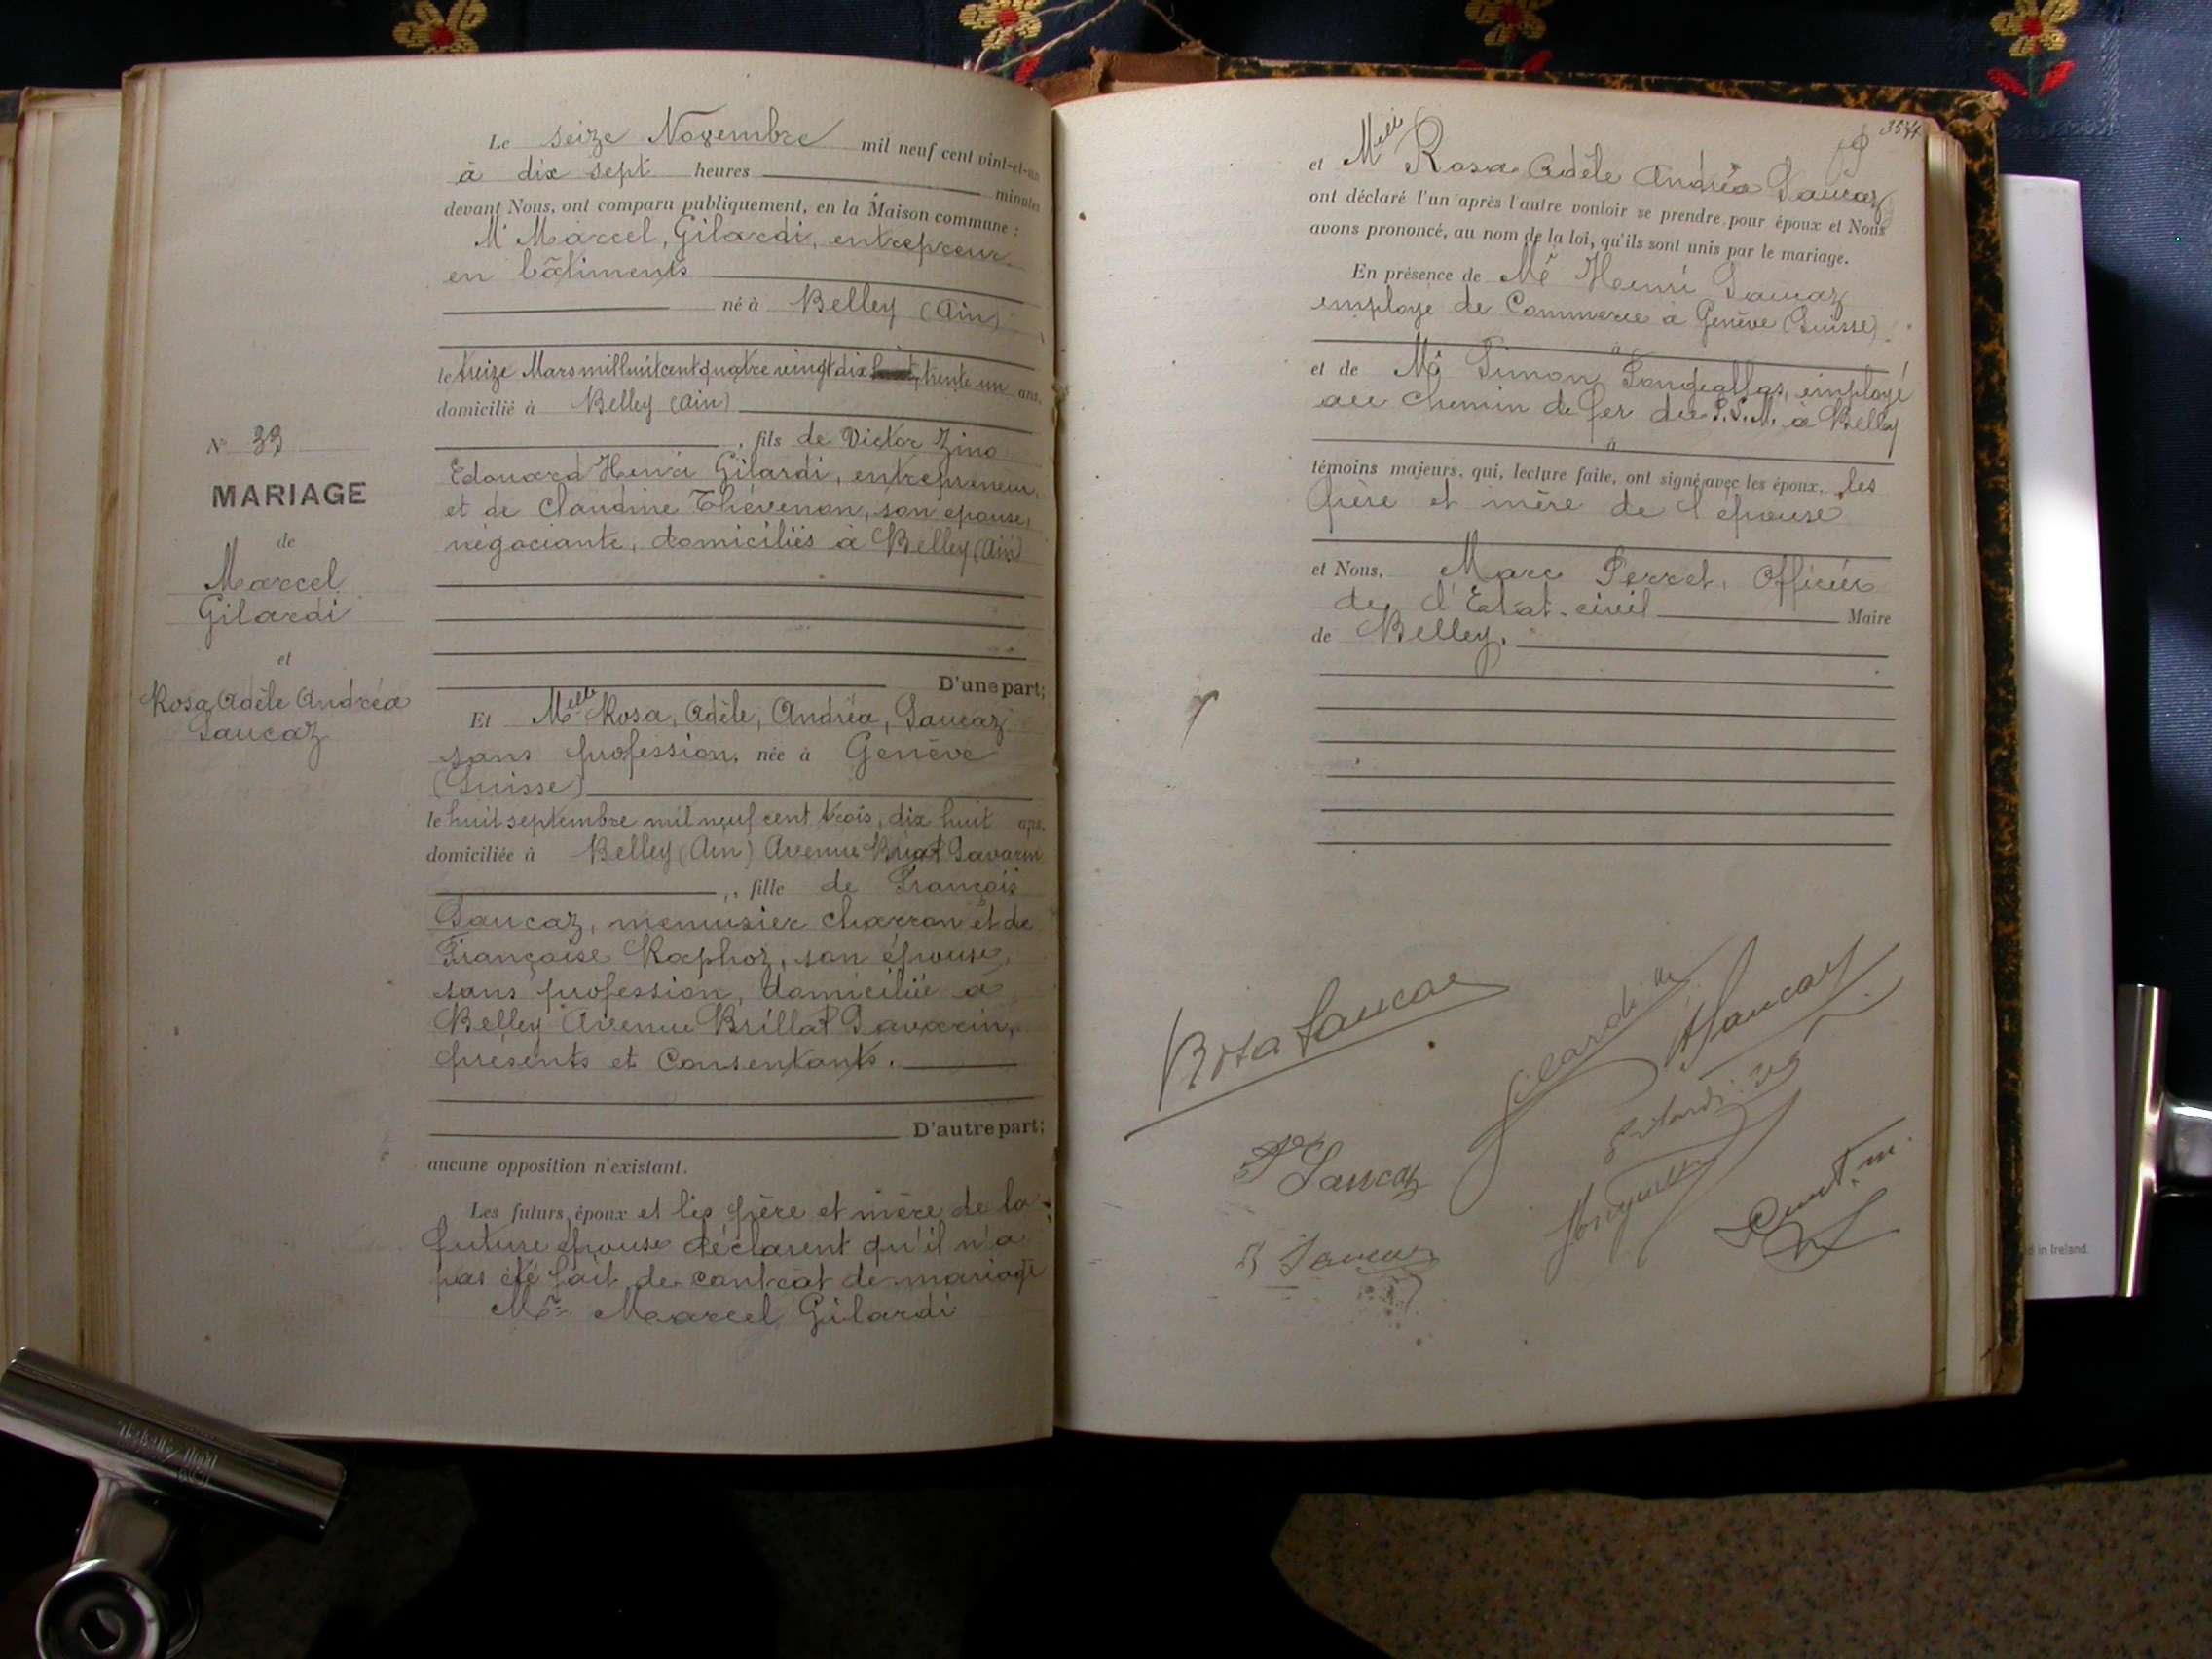 Le seize Novembre mil neuf cent vint-et-un
à dix sept heures minutes
devant Nous, ont comparu publiquement, en la Maison commune :
Mr Marcel, Gilardi, entrepreneur
en bâtiments
né à Belley (Ain)
le treize Mars mil huit cent quatre vingt dix, trente un ans.
domicilié à Belley (Ain)
, fils de Victor Zino
Edouard Henri Gilardi, entrepreneur,
et de Claudine Thévenon, son epouse,
négociante, domiciliés à Belley (Ain)
D'une part;
N° 33
MARIAGE
de
Marcel
Gilardi
et
Rosa Adèle Andréa
Saucaz
Et Melle Rosa, Adèle, Andréa, Saucaz
sans profession, née à Genève
(Suisse)
le huit septembre mil neuf cent trois, dix huit ans.
domiciliée à Belley (Ain) Avenue Savarin
, fille de François
Saucaz, menuisier charron et de
Françoise Raphoz, son épouse,
sans profession, domiciliée à
Belley Avenue Brillat Savarin,
présents et Consentants.
D'autre part;
aucune opposition n'existant.
Les futurs époux et les père et mère de la
future épouse déclarent qu'il n'a
pas été fait de contrat de mariage
Mr Marcel Gilardi
et Melle Rosa Adèle Andréa Saucaz
ont déclaré l'un après l'autre vouloir se prendre pour époux et Nous
avons prononcé, au nom de la loi, qu'ils sont unis par le mariage.
En présence de Mr Henri Saucaz
employe de Commerce à Genève (Suisse)
à
et de Mr Simon employé
au chemin de fer du P.L.M. à Belley
à
témoins majeurs, qui, lecture faite, ont signé avec les époux, les
père et mère de l'épouse
et Nous, Marc Perret, Officier
de l'Etat-civil Maire
de Belley.
Rosa Saucaz
Gilardi
Saucaz
Saucaz
d in Ireland.